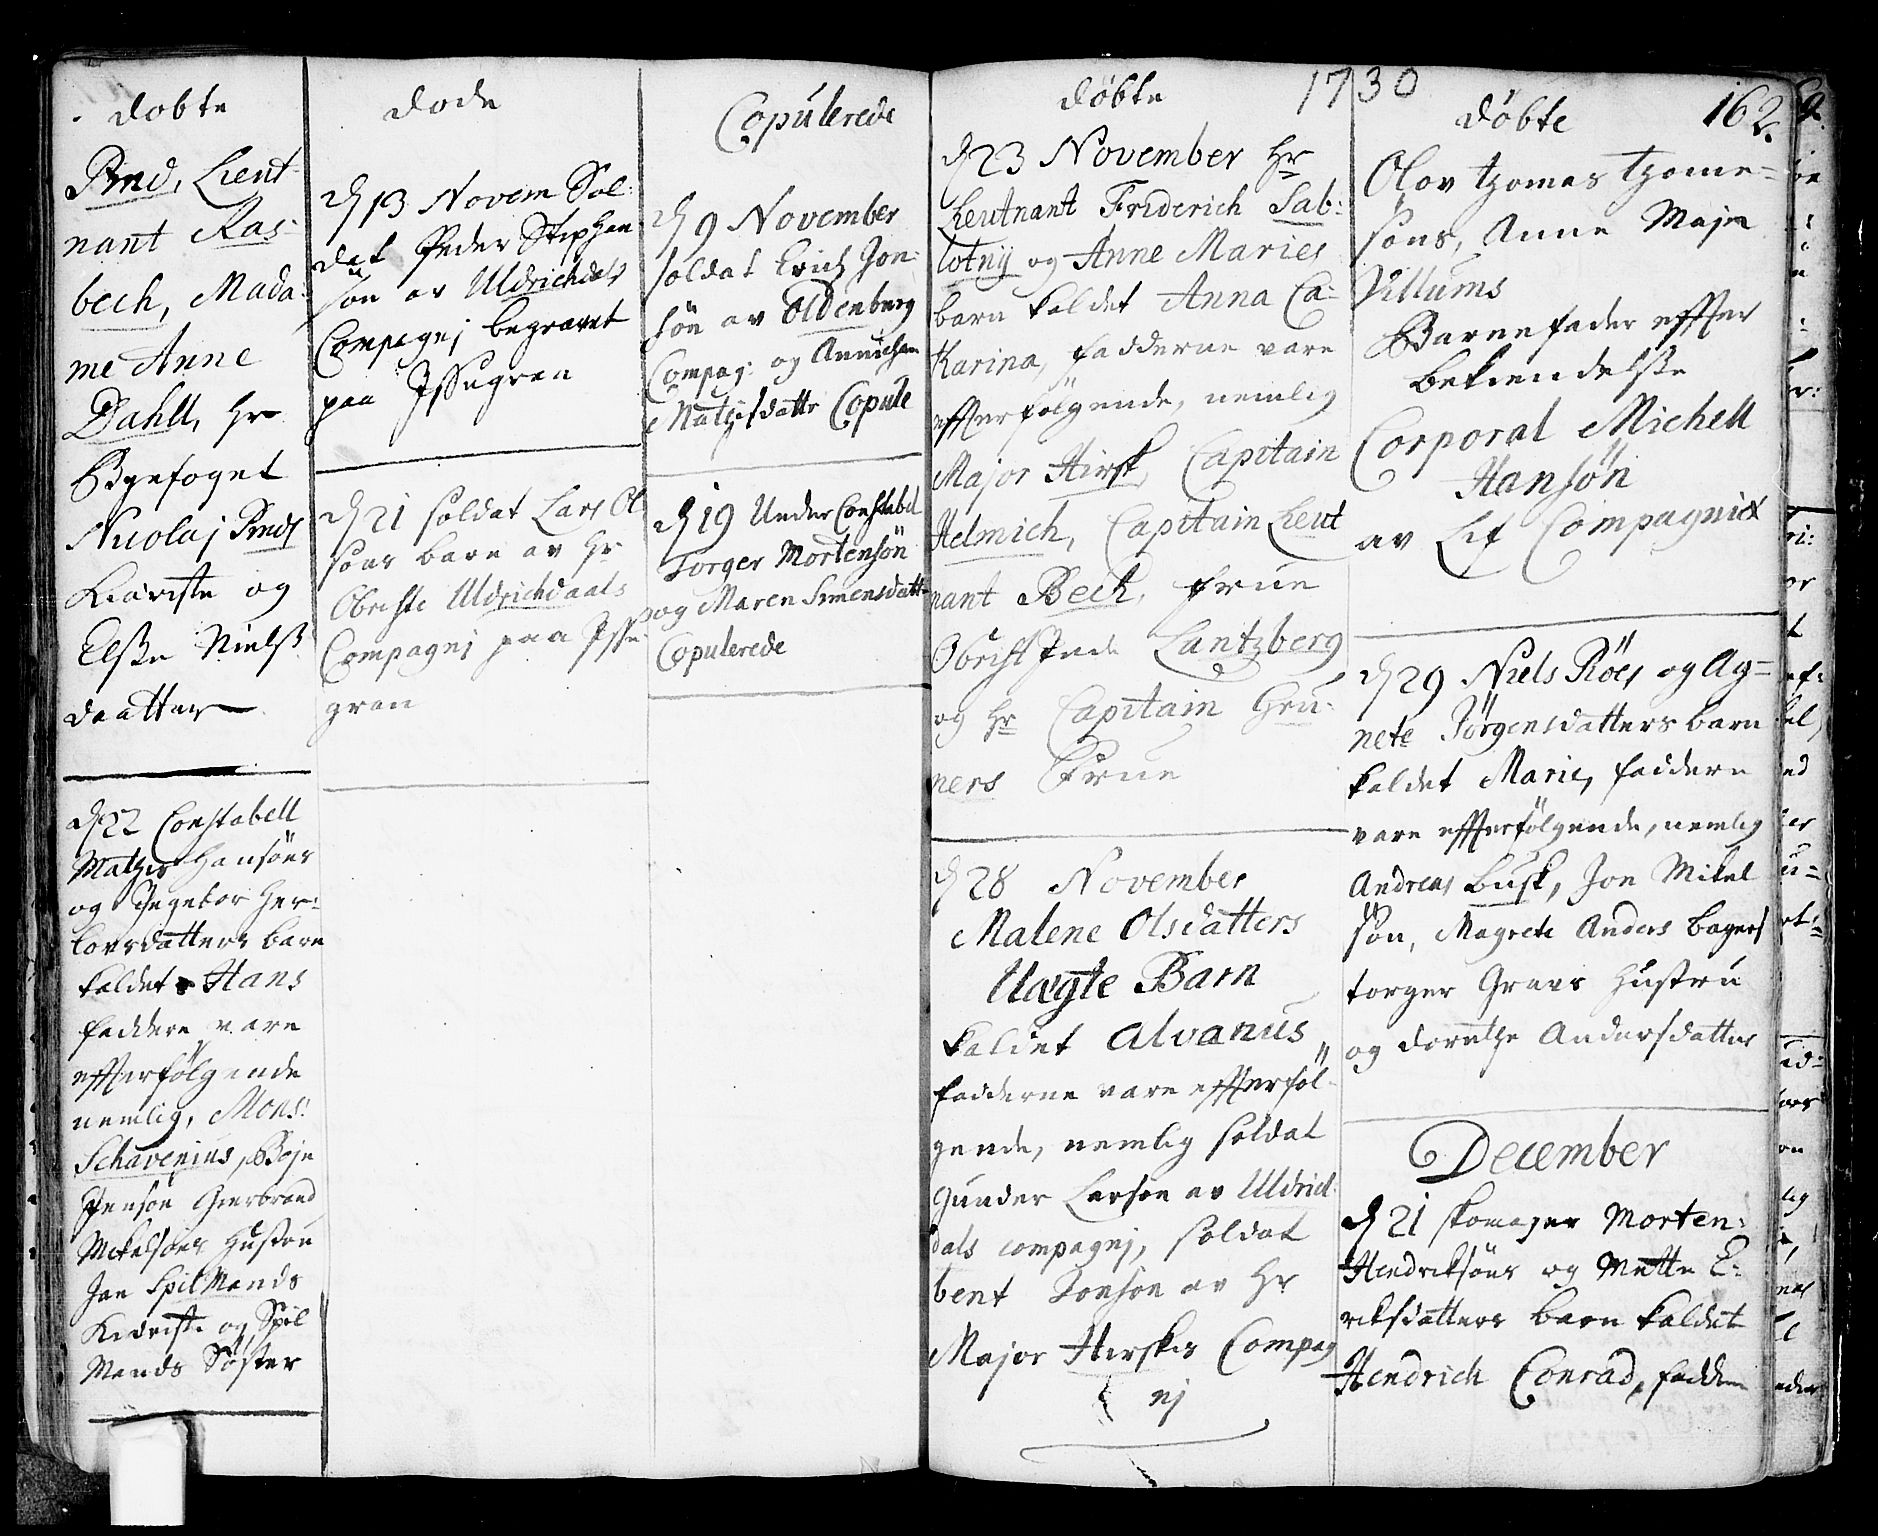 døbte
Pind, Lieut-
nant Ras-
bech, Mada-
me Anne
Dahll, Hr
Byefoget
Nicolaj Pinds
Kiæriste og
Elsse Niels-
daatter
d 22 Constabell
Mathis Hansøns
og Ingebor Her-
lovsdatters barn
kaldet Hans
faddere vare
effterfølgende
nemlig, Mons:
Schavenius, Boje
Jensøn Gierbrand
Mikelsøns Hustru
Jan SpilMands
Kieriste og Spil
Mands Søster
døde
d 13 Novem Sol-
dat Peder Stephen
søn av Uldrichdals
Compagnj begravet
paa Issegran
d 21 soldat Lars Ol
søns barn av Hr
Obriste Uldrichdaals
Compagnj paa Isse-
gran
Copulerede
d 9 November
soldat Erich Jon-
søn av Oldenberg
Compag: og Annichen
Mathisdattr Copule
d 19 Under Constabel
Torger Mortensøn
og Maren Simensdatt
Copulerede
1730
døbte
d 23 November Hr
Leutnant Friderich Sab-
lotnÿ og Anne Maries
barn kaldet Anna Ca-
tharina, fadderne vare
effterfølgende, nemlig
Major Hirsk, Capitain
Helmich, Capitain Lieut
nant Bech, Frue
Obristinde Lantzberg
og Hr Capitain Gru-
ners Frue
d 28 November
Malene Olsdatters
Uægte Barn
kaldet Alvanus
fadderne vare effterføl-
gende, nemlig soldat
Gunder Larsøn av Uldrich
dals compagnj, soldat
bent Tonsøn av Hr
Major Hirskes Compag
nj
162.
døbte
Olov Thomas Thome-
søns, Anne Maje
Villums
Barnefader effter
bekiendelsse
Corporal Michell
Hansøn
av Lif Compagniet
d 29 Niels Röes og Ag-
nete Jörgensdatters barn
kaldet Marie, faddere
vare effterfølgende, nemlig
Andreas Busk, Jon Mikel
søn, Magrete Anders Bagers
torger Graves Hustru
og dorethe Andersdatter
December
d 21 skomager Morten
Hendriksøns og Mette E-
riksdatters barn kaldet
Hendrich Conrad, fadde